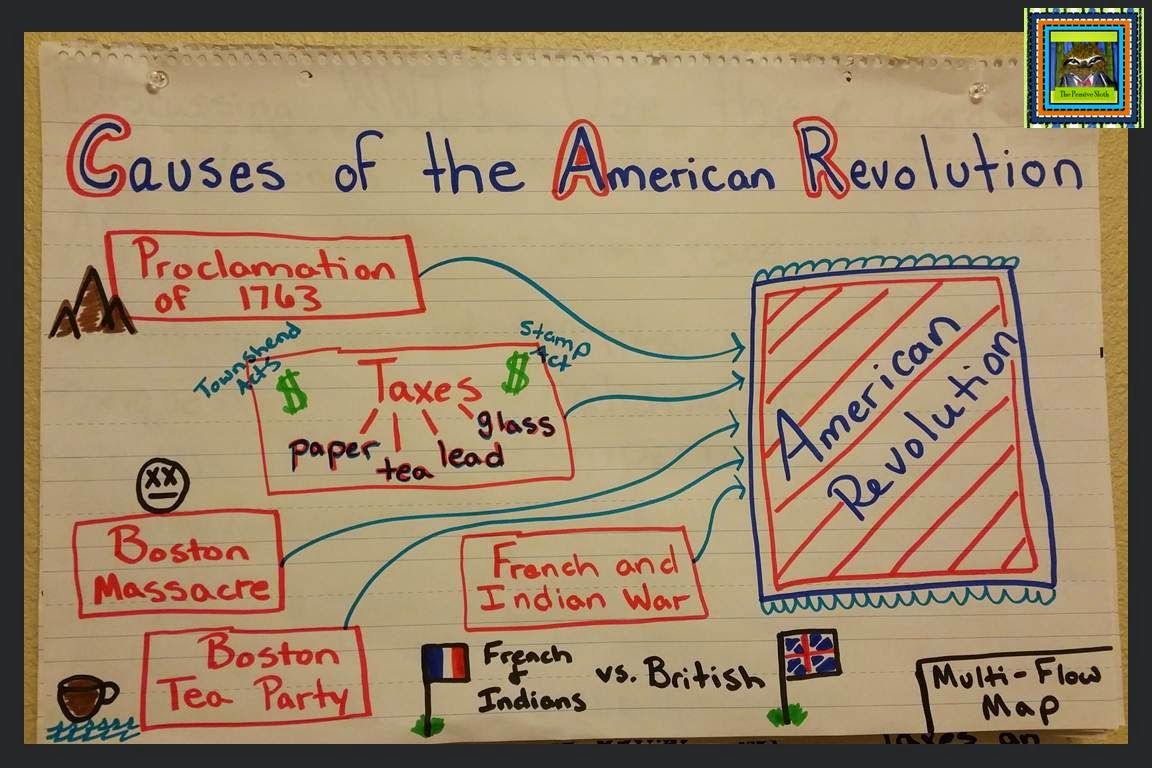 The Pensive Sloth
Causes of the American Revolution
Proclamation
of 1763
Townshend
Acts
$
Taxes
$
Stamp
Act
paper
tea
lead
glass
American
Revolution
Boston
Massacre
French and
Indian War
Boston
Tea Party
French
&
Indians
vs. British
Multi-Flow
Map